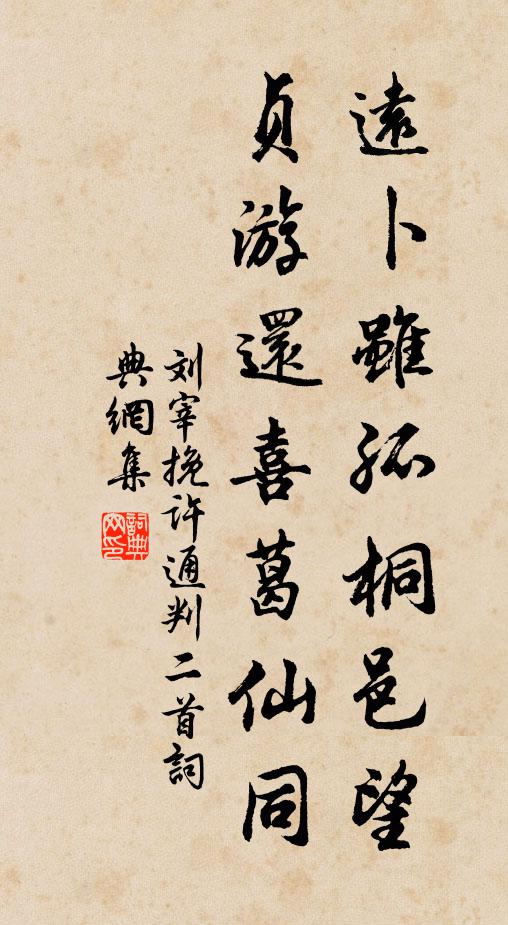 遠卜雖孤桐邑望
貞游還喜葛仙同
刘宰挽许通判二首詞
典網集
詞典
网印